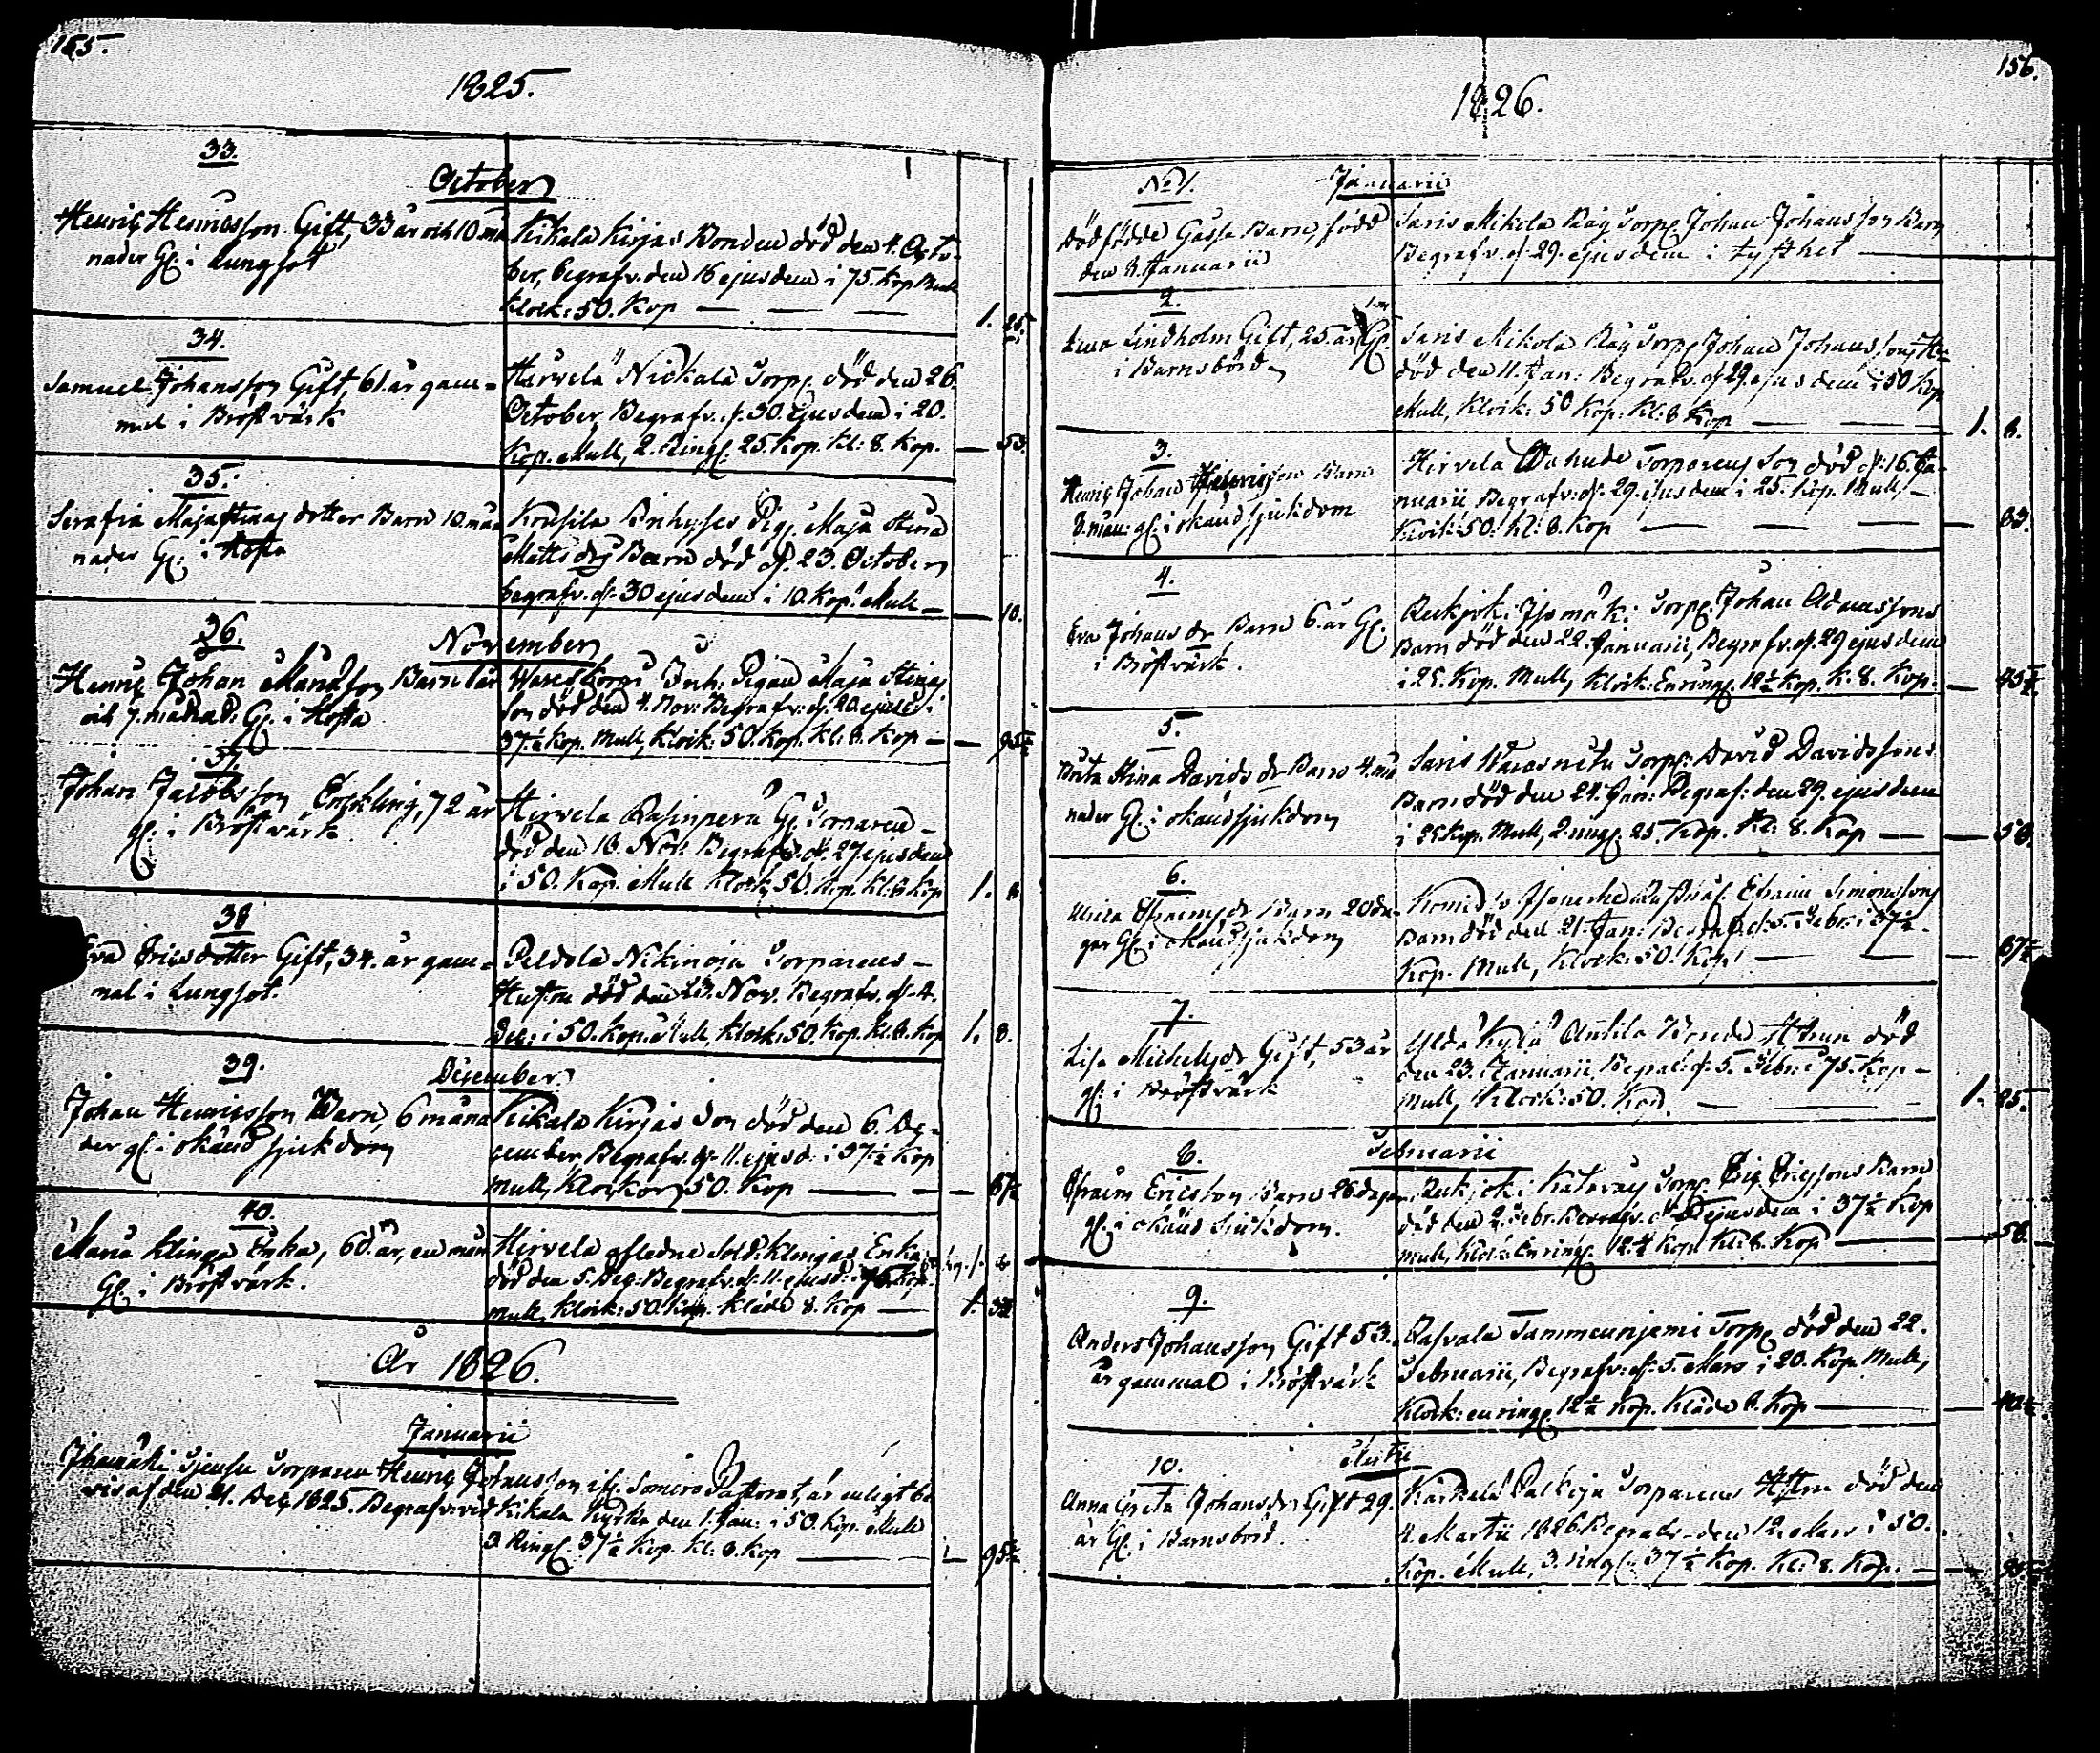 155.
1825.
33.
October
Henric Henricsson Gift, 33 år och 10 må
nader Gl. i Lungsot
Kikala Kirjas Bonden död den 4. Octo-
ber, begrafv. den 16 ejusdem i 75. Kop Mull
Klock: 50. Kop
1. 25.
34.
Samuel Johansson Gift, 61. år gam-
mal i Bröstvärk
Hirvelä Nickala Torp. död den 26.
October, Begrafv. d. 30. ejusdem i 20.
Kop. Mull, 2. Ringn. 25 Kop. Kl: 8. Kop.
53.
35.
Serafia Majastinas dotter Barn 10. må
nader Gl. i Hosta
Inhyses Pig. Maja Stina
Matts dr Barn död d. 23. October
begrafv. d. 30 ejusdem i 10. Kop. Mull
10.
36.
November
Henric Johan Barn 1 år
och 7. månad: Gl. i Hosta
Inh: Pigan Maja Stinas
son död den 4. Nov: Begrafv: d. 20. ejusd. i
37½ Kop. Mull, Klock: 50. Kop. Kl: 8. Kop
95½
37.
Johan Jacobsson Enkling, 72 år
gl. i Bröstvärk
Hirvela Rasinperä Gl. Torparen
död den 18. Nov: Begrafv. d. 27 ejusdem
i 50. Kop. Mull Klock, 50. Kop. Kl. 8 Kop
1. 8
38
Eva Ericsdotter Gift, 34. år gam-
mal i Lungsot.
Peldola Nikinoja Torparens
Hustru död den 23. Nov. Begrafv. d. 4.
Dec: i 50. Kop. Mull, Klock: 50. Kop. Kl. 8. Kop
1. 8.
39.
December
Johan Henricsson Barn, 6 måna
der gl. i okänd sjukdom
Kikala Kirjas Son död den 6. De-
cember, Begrafv. d. 11. ejusd: i 37½ Kop
Mull, Klockor, 50. Kop
87½
40.
Maria Klinga Enka, 60. år, en mån
Gl. i Bröstvärk.
Hirvela afledne Sold. Klingas Enka
död den 5. Dec: Begrafv. d. 11. ejusd: i 75 Kop.
Mull, Klock: 50. Kop. Kläde 8. Kop
1. 33
År 1826.
Januarii
Torparen Henric Johansson ifr. Somero Pastorat, är enligt be
vis af den 21. Dec, 1825. Begrafv. vid Kikala Kyrka den 1. Jan: i 50. Kop. Mull
3. Ringn. 37½ Kop. Kl: 8. Kop
95½
156.
1826.
No 1.
Januarii
Dödfödde Gosse Barn, född
den 8. Januarii
Saris Mikola Bäg Torp. Johan Johansson Barn
Begrafv. d. 29. ejusdem i tysthet
2.
Lindholm Gift, 25. år 1. m Gl.
i Barnsbörd
Saris Mikola Bäg Torp. Johan Johanssons
död den 11. Jan: Begrafv. d. 29. ejusdem i 50 Kop
Mull, Klock: 50 Kop: Kl: 8 Kop
1. 8.
3.
Henric Johan Henricsson Barn
8. mån: gl. i okänd sjukdom
Hirvela Torparens Son död d: 16. Ja-
nuarii Begrafv: d. 29. ejusdem i 25. Kop. Mull
Klock: 50. Kl: 8. Kop
83.
4.
Eva Johans dr Barn 6. år Gl.
i Bröstvärk.
Rekjoki Isomäki Torp. Johan Adamssons
Barn död den 22. Januarii, Begrafv. d. 29 ejusdem
i 25. Kop. Mull, Klock: En ringn. 12½ Kop. K: 8. Kop.
45½
5.
Brita Stina Davids dr Barn 4. må
nader Gl. i okänd sjukdom
Saris Torp: David Davidssons
Barn död den 24. Jan: Begraf: den 29. ejusdem
i 25 Kop. Mull, 2. ringn. 25. Kop. Kl: 8. Kop
58.
6.
Efraims dr Barn 20 da-
gar Gl. i okänd sjukdom
Efraim Simonssons
Barn död den 21. Jan: Begraf. d. 5. Febr: i 37½
Kop. Mull, Klock: 50. Kop.
87½
7.
Lisa Michels dr Gift, 53 år
gl. i Bröstvärk
Yldä Kylä Anttila Bonde Hustru död
den 23. Januarii, Begraf: d. 5. Febr: i 75. Kop
Mull, Klock: 50. Kop.
1. 25.
8.
Februarii
Efraim Ericsson Barn 26 dagar
gl. i okänd Sjukdom.
Rekjoki Torp. Eric Ericssons Barn
död den 2. Febr. Begrafv. d. ejusdem i 37½ Kop
Mull, Klock: En ringn. 12½ Kop. Kl: 8. Kop
58.
9.
Anders Johansson Gift 53.
år gammal i Bröstvärk
Rasvala Tammeinjemi Torp. död den 22.
Februarii, Begrafv: d: 5. Mars i 20. Kop. Mull,
Klock: en ringn. 12½ Kop. Kläde 8. Kop
40½
10.
Martii
Anna Greta Johansdr Gift 29.
år Gl. i Barnsbörd.
Kärkelä Palkoja Torparens Hustru död den
Martii 1826. Begrafv. den 12. Mars i 50.
Kop. Mull, 3. ringn. 37½ Kop. Kl: 8. Kop.
95½